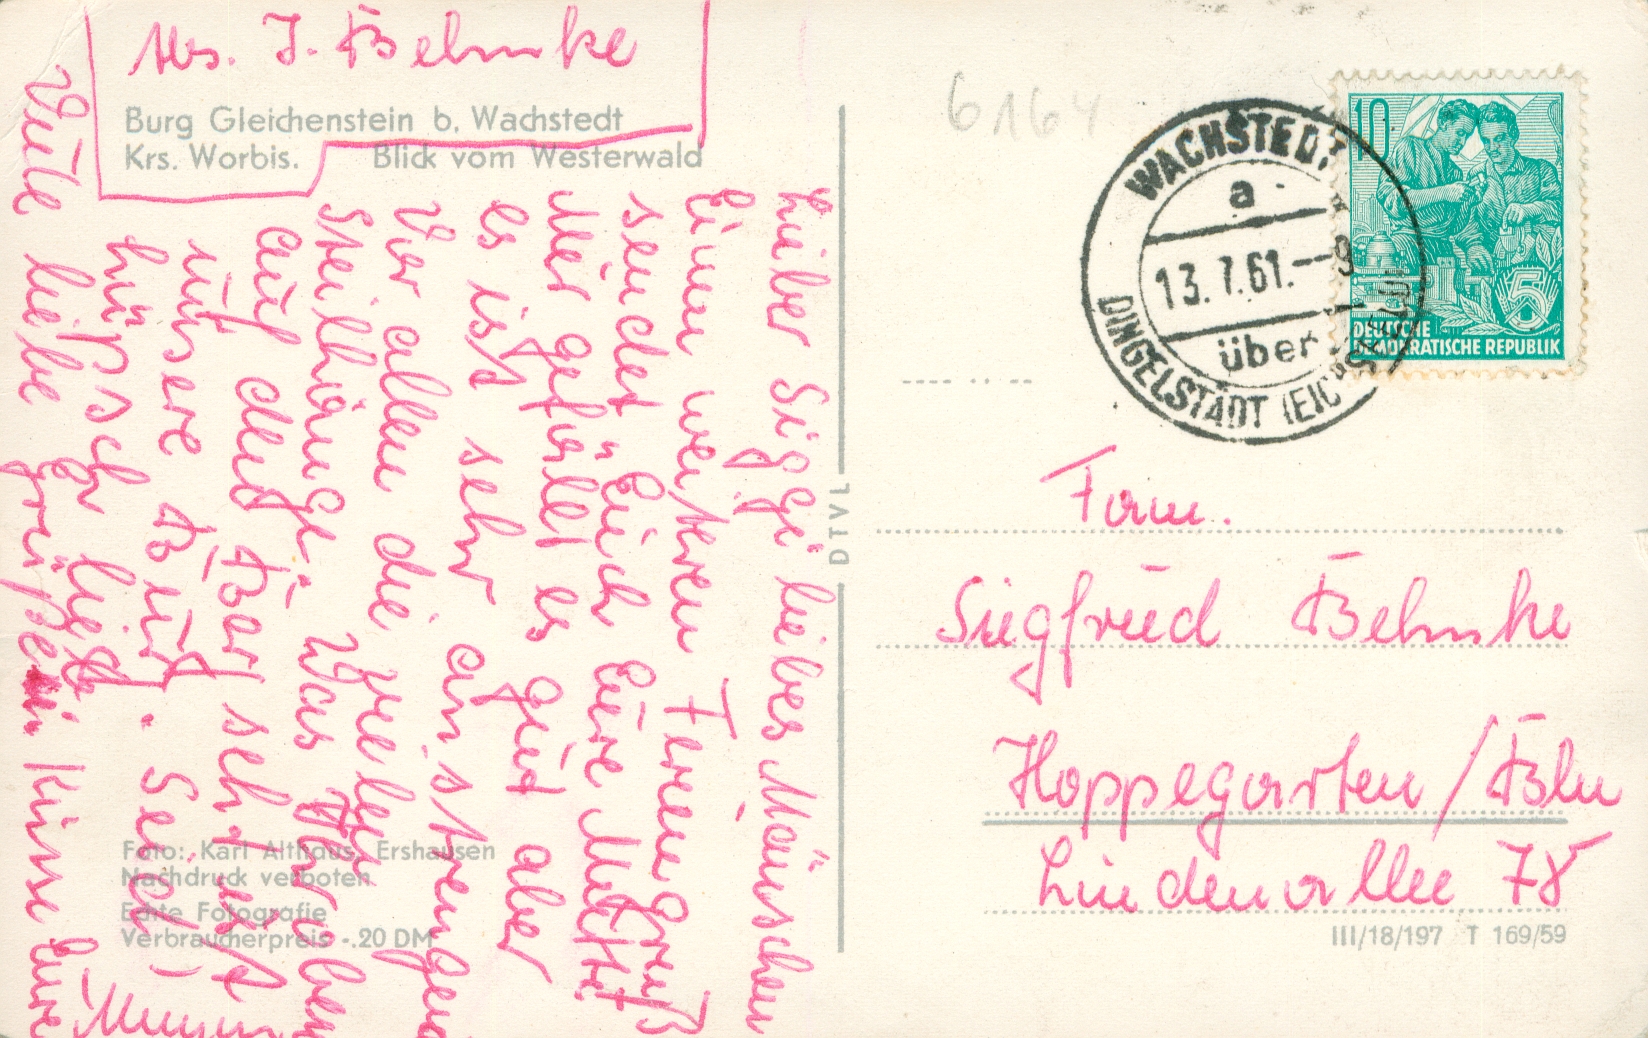 Abs. J. Behnke
Burg Gleichenstein b. Wachstedt
Krs. Worbis. Blick vom Westerwald
Lieber Siggi liebes Mäuschen
Einen weiteren Feriengruß
sendet Euch Eure Mutti
Mir gefällt es gut aber
es ist sehr anstrengend
Vor allem die vielen
Steilhänge. Was Ihr oben
auf dem Berg seht ist
unsere Burg.
hübsch
Viele liebe Grüße Küsse Eure
Foto: Karl Althaus, Ershausen
Nachdruck verboten
Echte Fotografie
Verbraucherpreis -.20 DM
DTVL
6164
WACHSTEDT
a
13.7.61.--9
über
DINGELSTÄDT (EIC
10
5
DEUTSCHE
DEMOKRATISCHE REPUBLIK
Fam.
Siegfried Behnke
Hoppegarten / Bln
Lindenallee 78
III/18/197 T 169/59